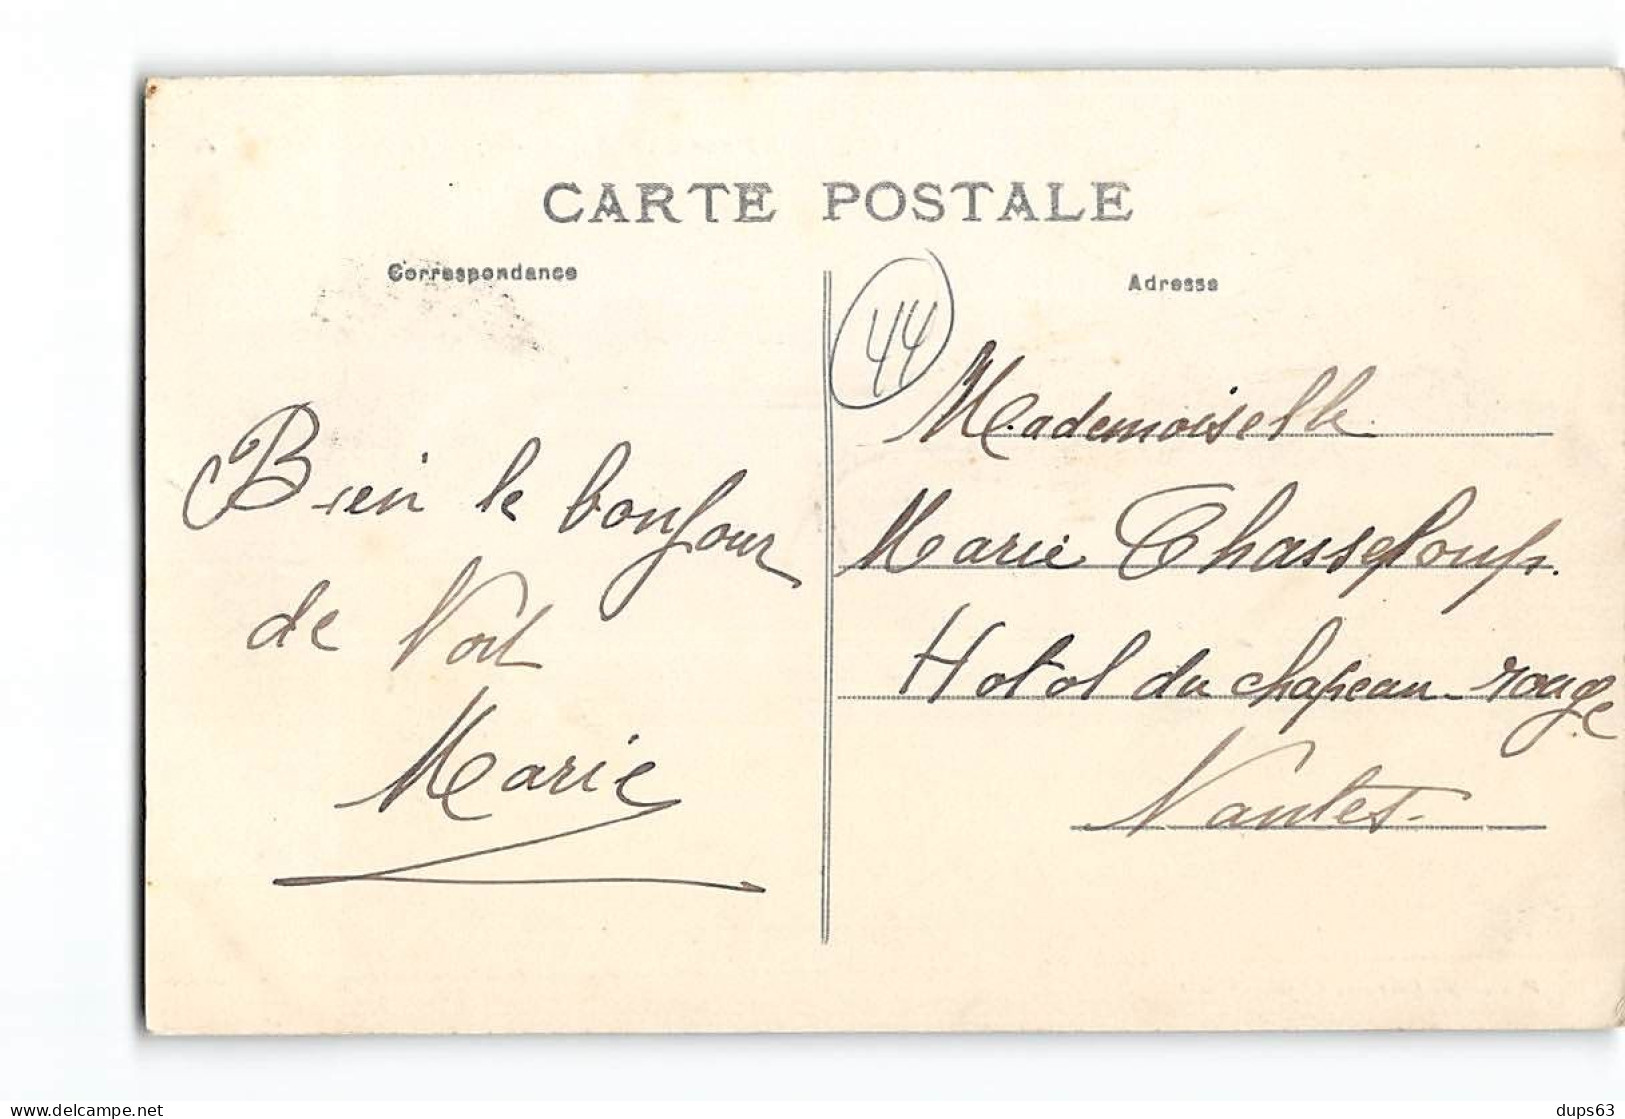 CARTE POSTALE
Correspondance
Adresse
44
Bien le bonjour
de Nort
Marie
Mademoiselle
Marie Chasseloup.
Hotol du chapeau-rouge
Nantes.
delcampe.net
dups63